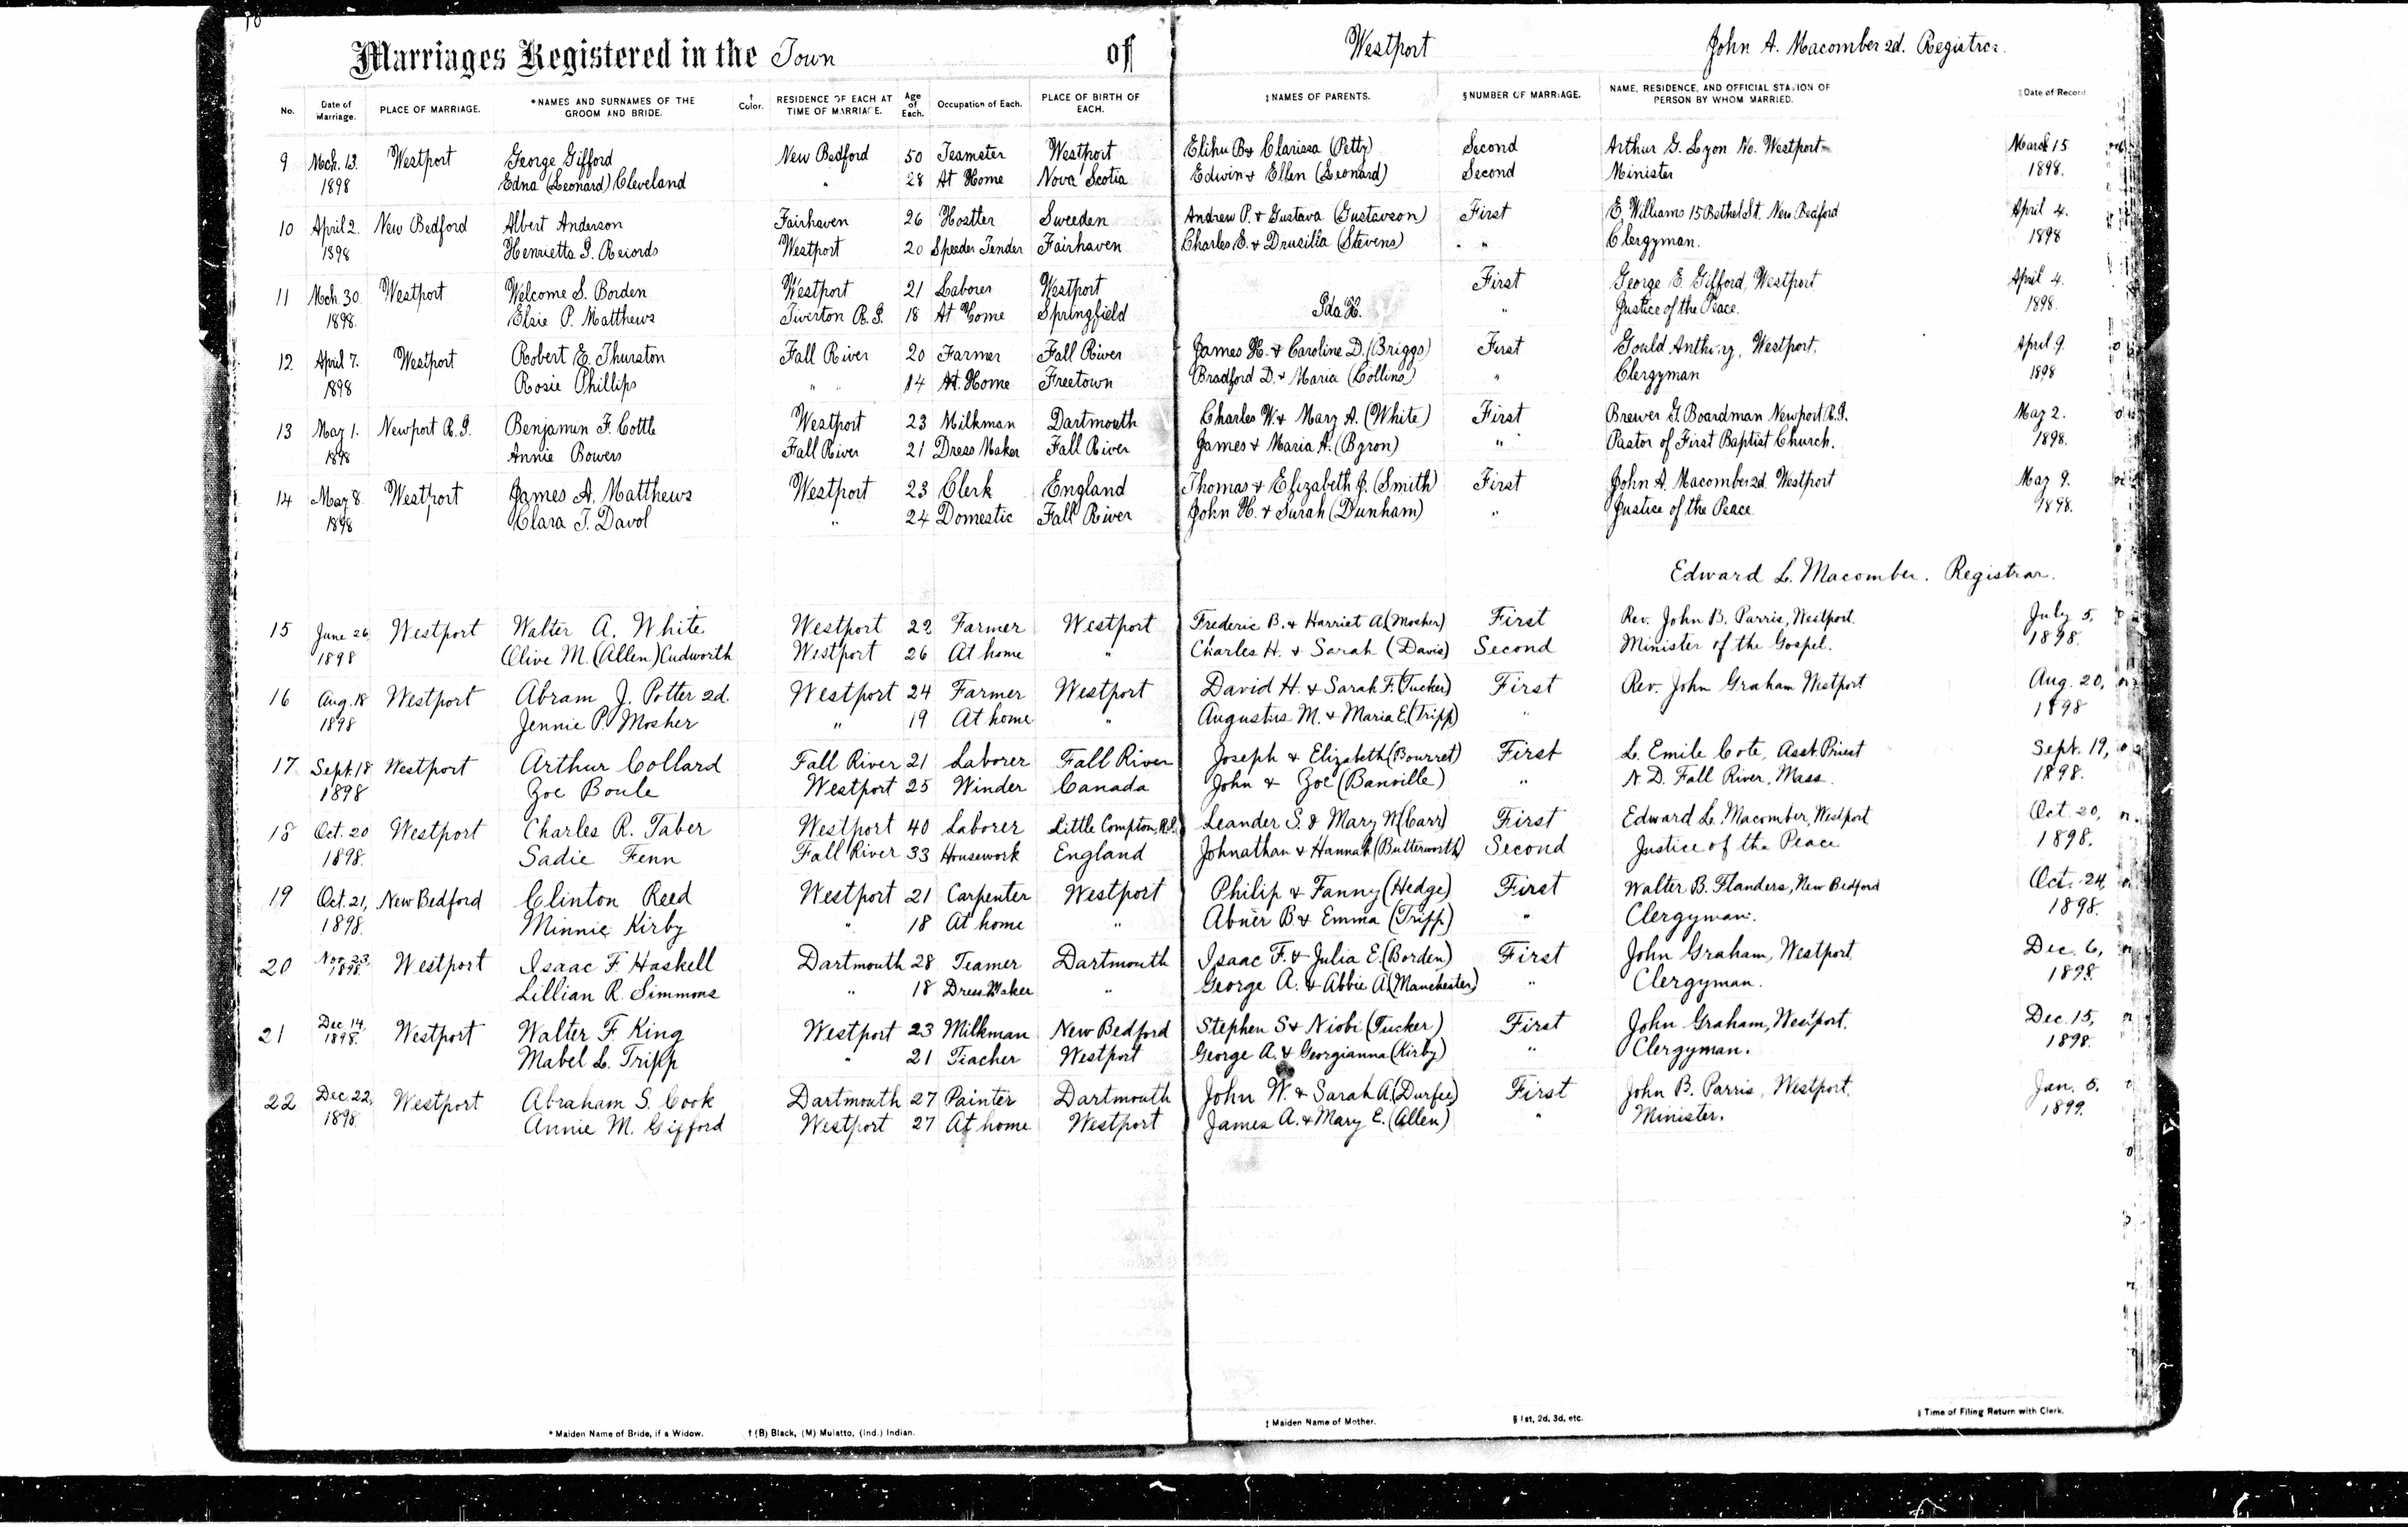 Marriages Registered in the Town of Westport John A. Macomber 2d. Registrar.
No. Date of Marriage. PLACE OF MARRIAGE. *NAMES AND SURNAMES OF THE GROOM AND BRIDE. † Color. RESIDENCE OF EACH AT TIME OF MARRIAGE. Age of Each. Occupation of Each. PLACE OF BIRTH OF EACH. ‡NAMES OF PARENTS. §NUMBER OF MARRIAGE. NAME, RESIDENCE, AND OFFICIAL STATION OF PERSON BY WHOM MARRIED. Date of Record
9 Mch. 13. Westport George Gifford New Bedford 50 Teamster Westport Elihu B & Clarissa (Petty) Second Arthur G. Lyon No. Westport March 15
1898 Edna (Leonard) Cleveland " 28 At Home Nova Scotia Edwin & Ellen (Leonard) Second Minister 1898.
10 April 2. New Bedford Albert Anderson Fairhaven 26 Hostler Sweeden Andrew P. & Gustava (Gustavson) First E. Williams 15 Bethel St. New Bedford April 4.
1898 Henrietta I. Records Westport 20 Speeder Tender Fairhaven Charles E. & Drusilla (Stevens) " Clergyman. 1898
11 Mch. 30. Westport Welcome S. Borden Westport 21 Laborer Westport First George E. Gifford, Westport April 4.
1898. Elsie P. Matthews Tiverton R.I. 18 At Home Springfield Ida H. " Justice of the Peace. 1898.
12 April 7. Westport Robert E. Thurston Fall River 20 Farmer Fall River James H. & Caroline D. (Briggs) First Gould Anthony, Westport. April 9.
1898 Rosie Phillips " " 14 At Home Freetown Bradford D. & Maria (Collins) " Clergyman 1898
13 May 1. Newport R.I. Benjamin F. Cottle Westport 23 Milkman Dartmouth Charles W. & Mary A. (White) First Brewer G. Boardman Newport R.I. May 2.
1898 Annie Bowers Fall River 21 Dress Maker Fall River James & Maria A. (Byron) " Pastor of First Baptist Church. 1898.
14 May 8. Westport James A. Matthews Westport 23 Clerk England Thomas & Elizabeth J. (Smith) First John A. Macomber 2d. Westport May 9.
1898 Clara T. Davol " 24 Domestic Fall River John H. & Sarah (Dunham) " Justice of the Peace 1898.
Edward L. Macomber. Registrar.
15 June 26 Westport Walter A. White Westport 22 Farmer Westport Frederic B. & Harriet A (Mosher) First Rev. John B. Parris, Westport. July 5,
1898 Olive M. (Allen) Cudworth Westport 26 At home " Charles H. & Sarah (Davis) Second Minister of the Gospel. 1898.
16 Aug. 18 Westport Abram J. Potter 2d. Westport 24 Farmer Westport David H. & Sarah F. (Tucker) First Rev. John Graham Westport Aug. 20,
1898 Jennie P. Mosher " 19 At home " Augustus M. & Maria E. (Tripp) " 1898
17 Sept. 18 Westport Arthur Collard Fall River 21 Laborer Fall River Joseph & Elizabeth (Bourret) First L. Emile Cote, Asst. Priest Sept. 19,
1898 Zoe Boule Westport 25 Winder Canada John & Zoe (Banville) " N. D. Fall River, Mass. 1898.
18 Oct. 20 Westport Charles R. Taber Westport 40 Laborer Little Compton, R.I. Leander S. & Mary M (Carr) First Edward L. Macomber, Westport Oct. 20,
1898. Sadie Fenn Fall River 33 Housework England Johnathan & Hannah (Butterworth) Second Justice of the Peace 1898.
19 Oct. 21, New Bedford Clinton Reed Westport 21 Carpenter Westport Philip & Fanny (Hedge) First Walter B. Flanders, New Bedford Oct. 24,
1898. Minnie Kirby " 18 At home " Abner B. & Emma (Tripp) " Clergyman. 1898.
20 Nov. 23, 1898. Westport Isaac F. Haskell Dartmouth 28 Teamer Dartmouth Isaac F. & Julia E. (Borden) First John Graham, Westport. Dec. 6,
Lillian R. Simmons " 18 Dress Maker " George A. & Abbie A (Manchester) " Clergyman. 1898.
21 Dec. 14, 1898. Westport Walter F. King Westport 23 Milkman New Bedford Stephen S & Niobi (Tucker) First John Graham, Westport. Dec. 15,
Mabel L. Tripp " 21 Teacher Westport George A. & Georgianna (Kirby) " Clergyman. 1898.
22 Dec. 22, Westport Abraham S. Cook Dartmouth 27 Painter Dartmouth John W. & Sarah A. (Durfee) First John B. Parris, Westport. Jan. 5.
1898. Annie M. Gifford Westport 27 At home Westport James A. & Mary E. (Allen) " Minister. 1899.
* Maiden Name of Bride, if a Widow. † (B) Black, (M) Mulatto, (Ind.) Indian. ‡ Maiden Name of Mother. § 1st, 2d, 3d, etc. Time of Filing Return with Clerk.